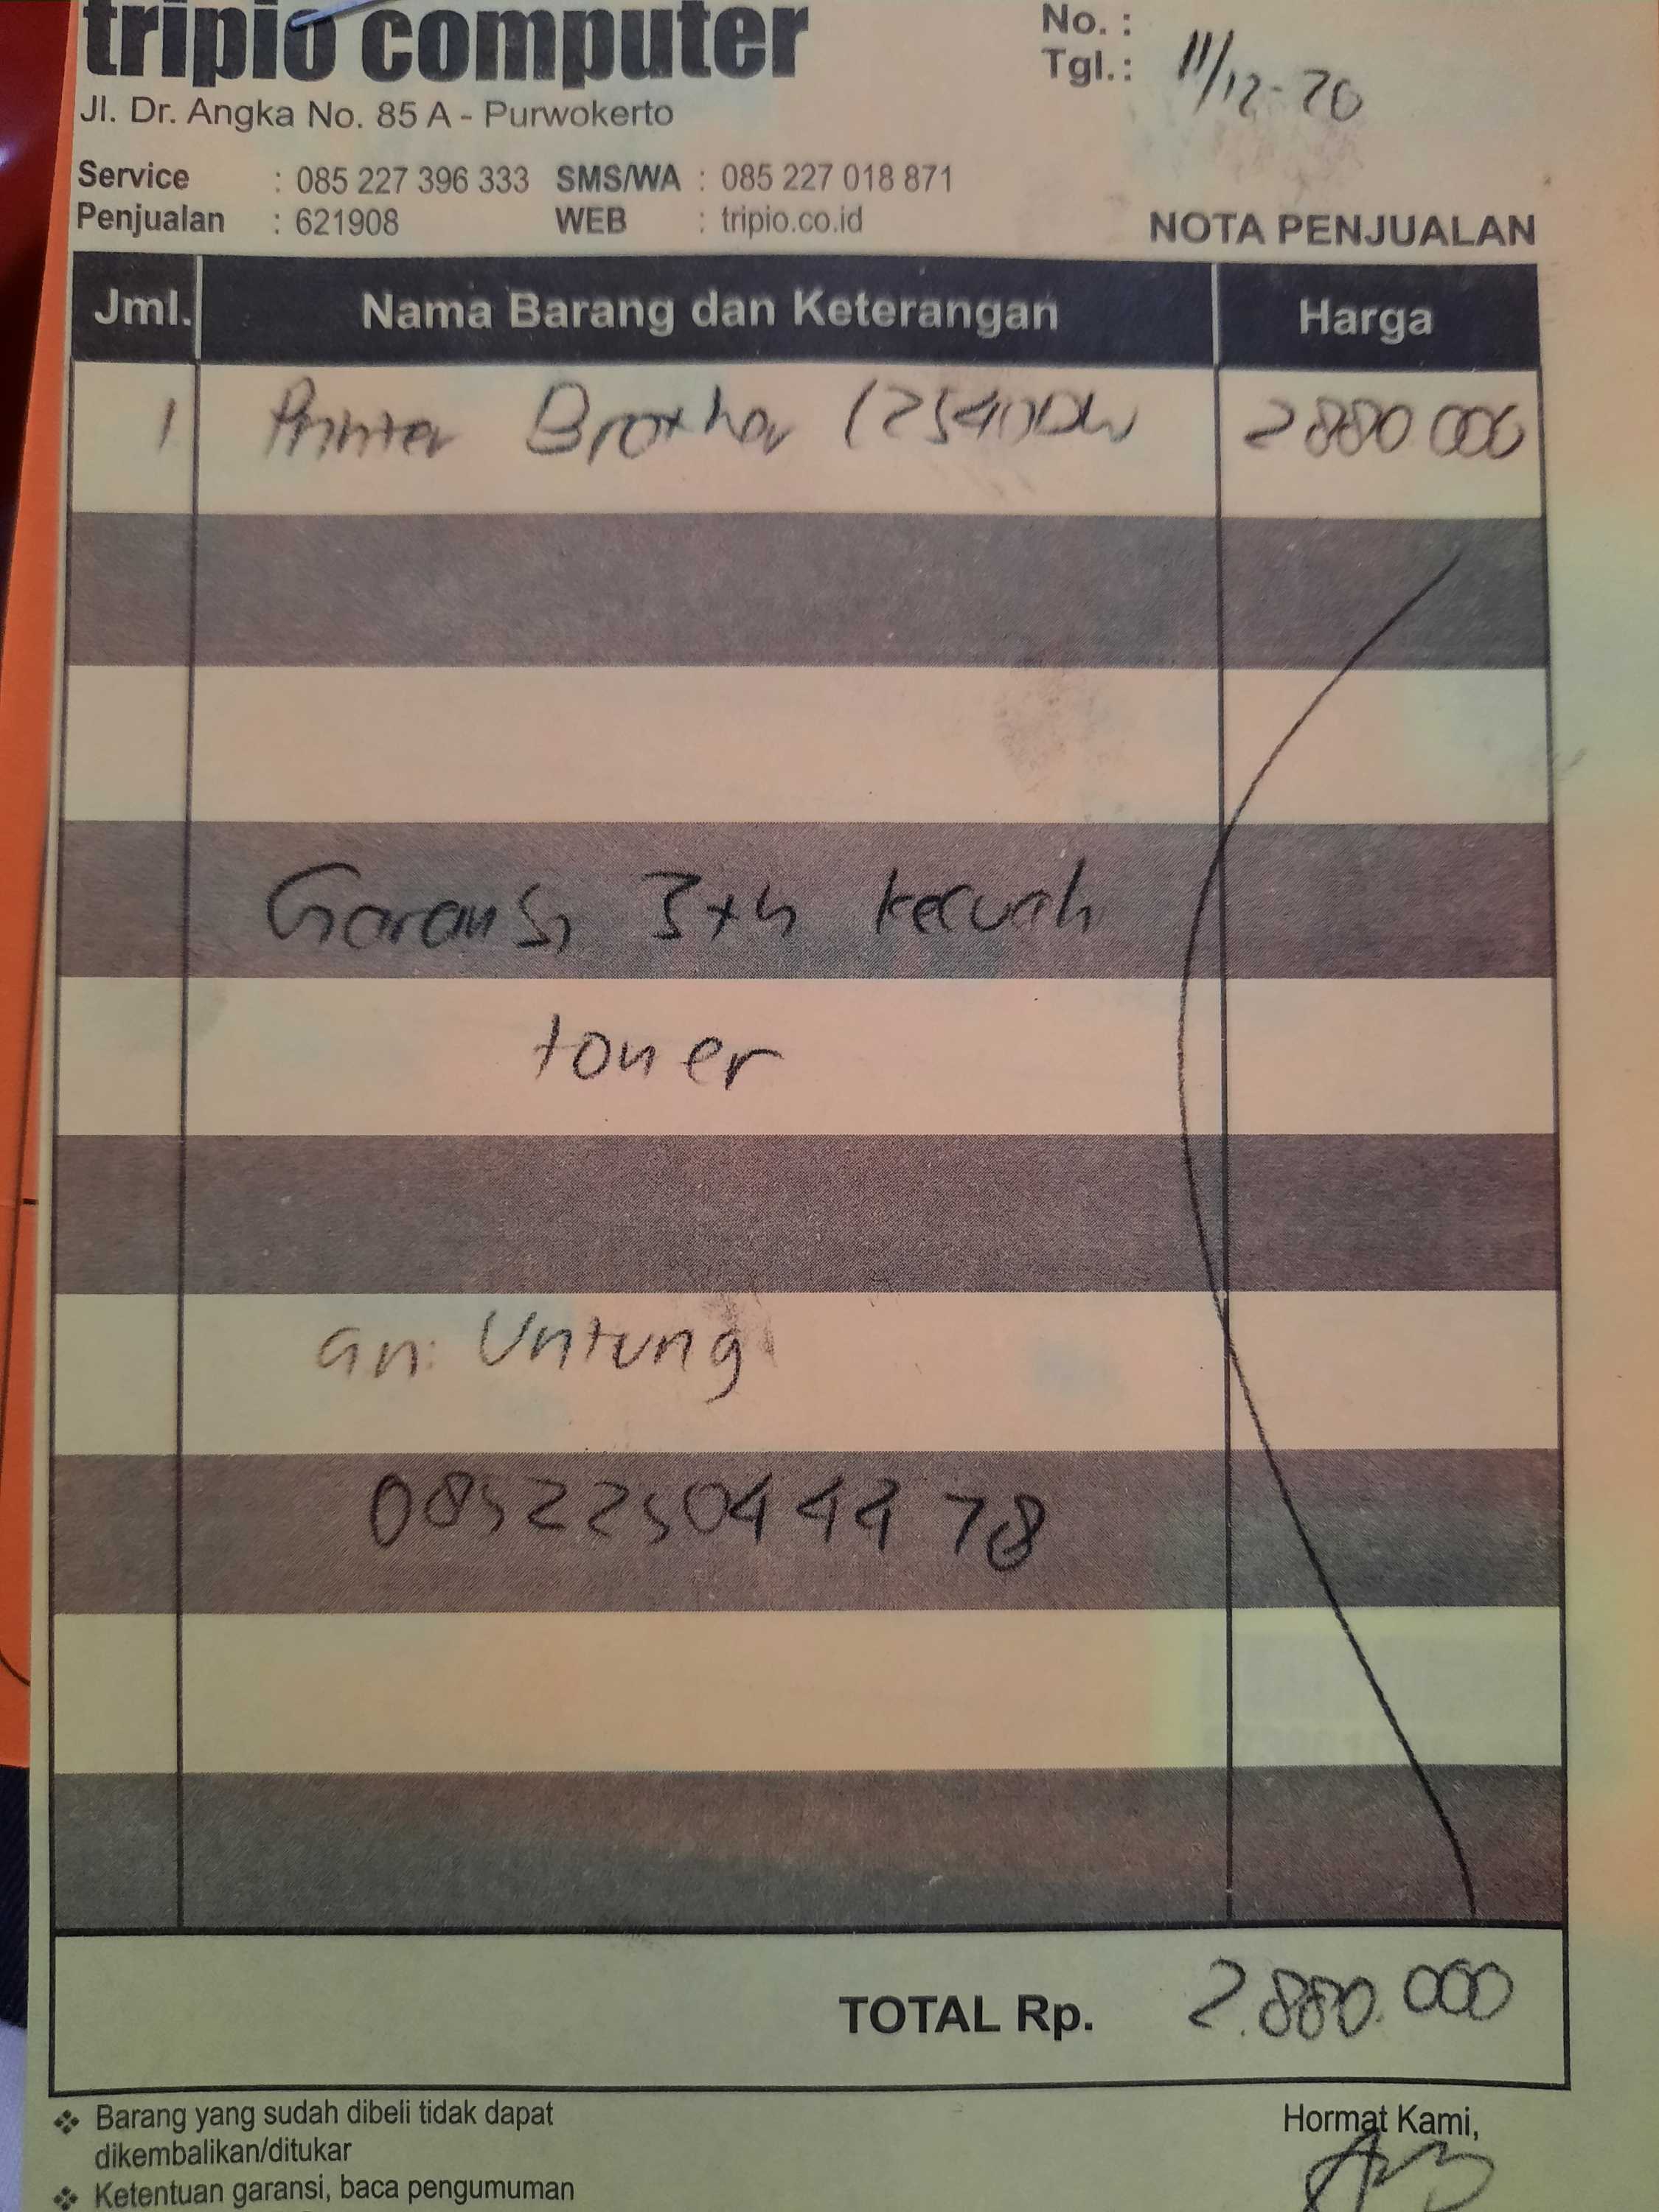 tripio computer
Jl. Dr. Angka No. 85 A - Purwokerto
No. :
Tgl.: 11/12-20
Service : 085 227 396 333 SMS/WA : 085 227 018 871
Penjualan : 621908 WEB : tripio.co.id
NOTA PENJUALAN
Jml. Nama Barang dan Keterangan Harga
1 Printer Brother (2540DW 2880 000
Garansi 3th kecuali
toner
an: Untung
085225044478
TOTAL Rp. 2.880.000
Barang yang sudah dibeli tidak dapat
dikembalikan/ditukar
Ketentuan garansi, baca pengumuman
Hormat Kami,